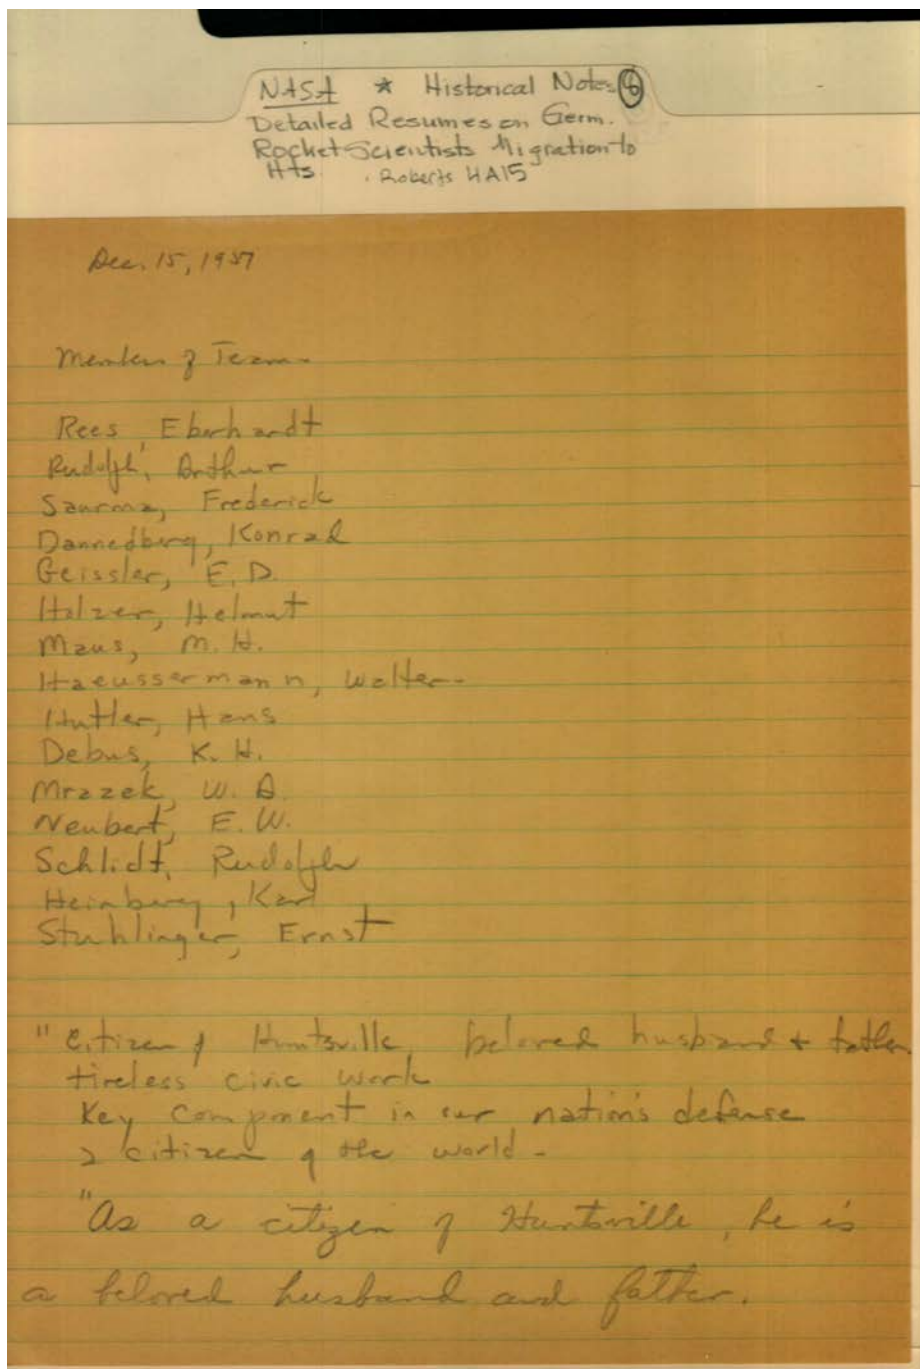 NASA * Historical Notes 6
Detailed Resumes on Germ.
Rocket Scientists Migration to
Hts. . Roberts 4A15
Dec. 15, 1957
Members of Team
Rees, Eberhardt
Rudolph, Arthur
Saurma, Frederick
Dannedberg, Konrad
Geissler, E. D.
Holzer, Helmut
Maus, M. H.
Haeussermann, Walter
Hutler, Hans
Debus, K. H.
Mrazek, W. A.
Neubert, E. W.
Schlidt, Rudolph
Heinberg, Karl
Stuhlinger, Ernst
"Citizen of Huntsville, beloved husband + father
tireless civic work
Key component in our nation's defense
a citizen of the world -
"As a citizen of Huntsville, he is
a beloved husband and father.